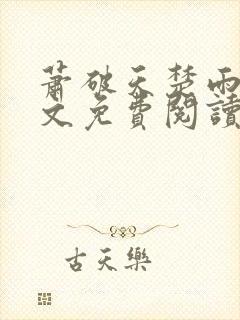 萧破天楚雨
文免費閱讀
古天樂